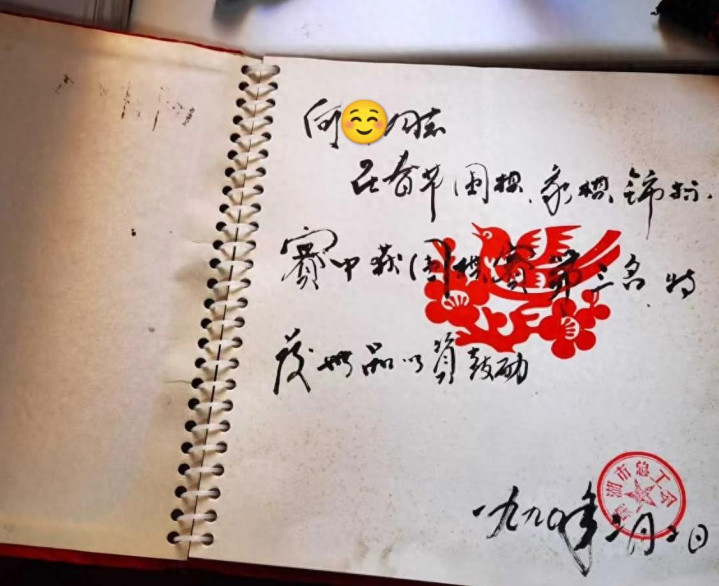 何 同志
在春节围棋、象棋锦标
赛中获围棋赛第三名.特
发此品以资鼓励
市总工会
一九九〇年二月 日